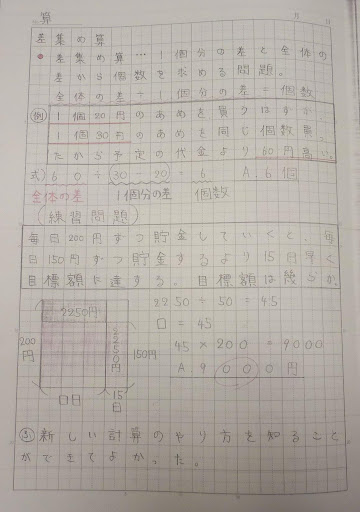 算
月 日
差集め算
●差集め算…1個分の差と全体の
差から個数を求める問題。
全体の差÷1個分の差=個数
例 1個20円のあめを買うはずが、
1個30円のあめを同じ個数買っ
たから予定の代金より60円高い。
式)60÷(30-20)=6 A.6個
全体の差 1個分の差 個数
(練習問題)
毎日200円ずつ貯金していくと、毎
日150円ずつ貯金するより15日早く
目標額に達する。目標額は幾らか。
2250円
2250÷50=45
□=45
200円
2250円
150円
45×200=9000
A.9000円
□日
15日
新しい計算のやり方を知ること
ができてよかった。